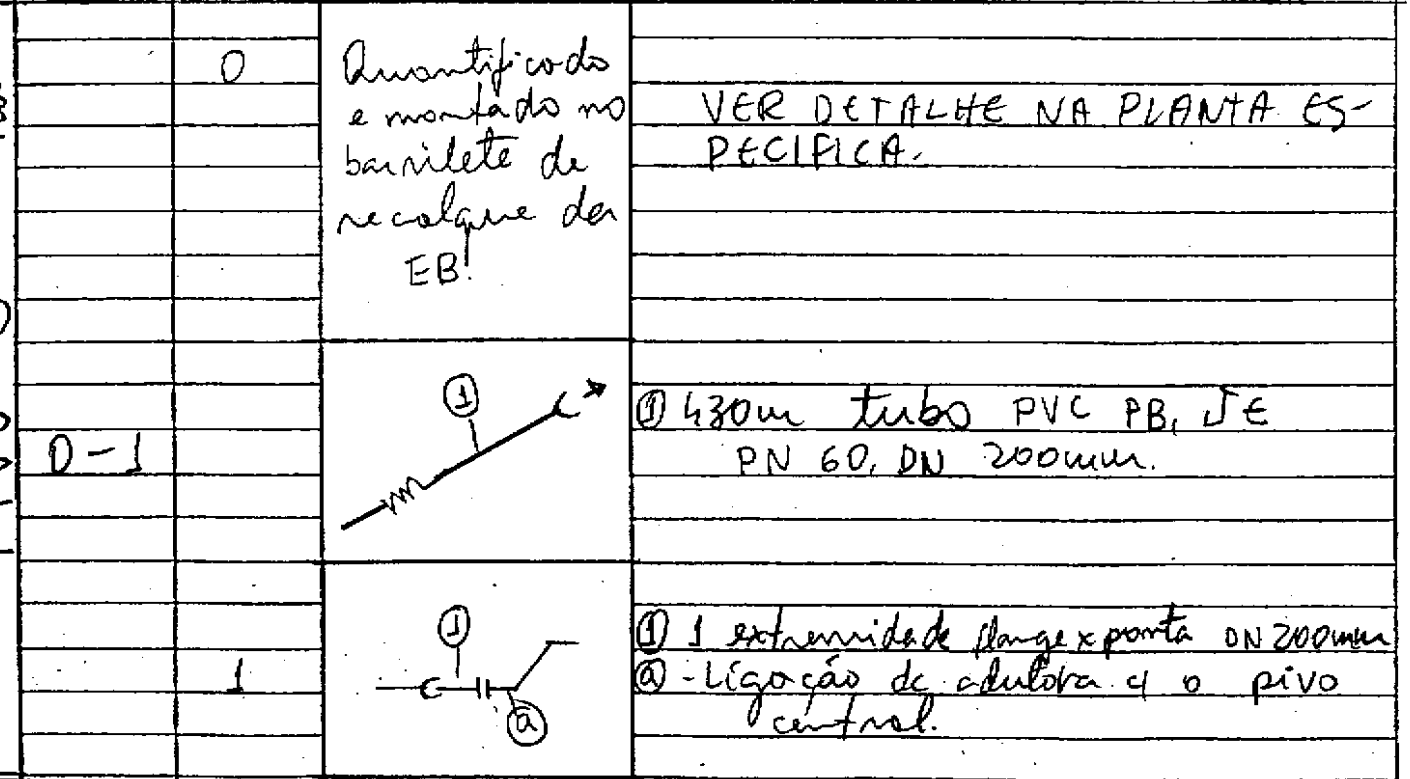 0
Quantificado
e montado no
barrilete de
recalque da
EB!
VER DETALHE NA PLANTA ES-
PECIFICA.
0-1
1
① 430m tubo PVC PB, JE
PN 60, DN 200mm.
1
1
a
① 1 extremidade flange x ponta DN 200mm
ⓐ - Ligação da adutora c/ o pivo
central.